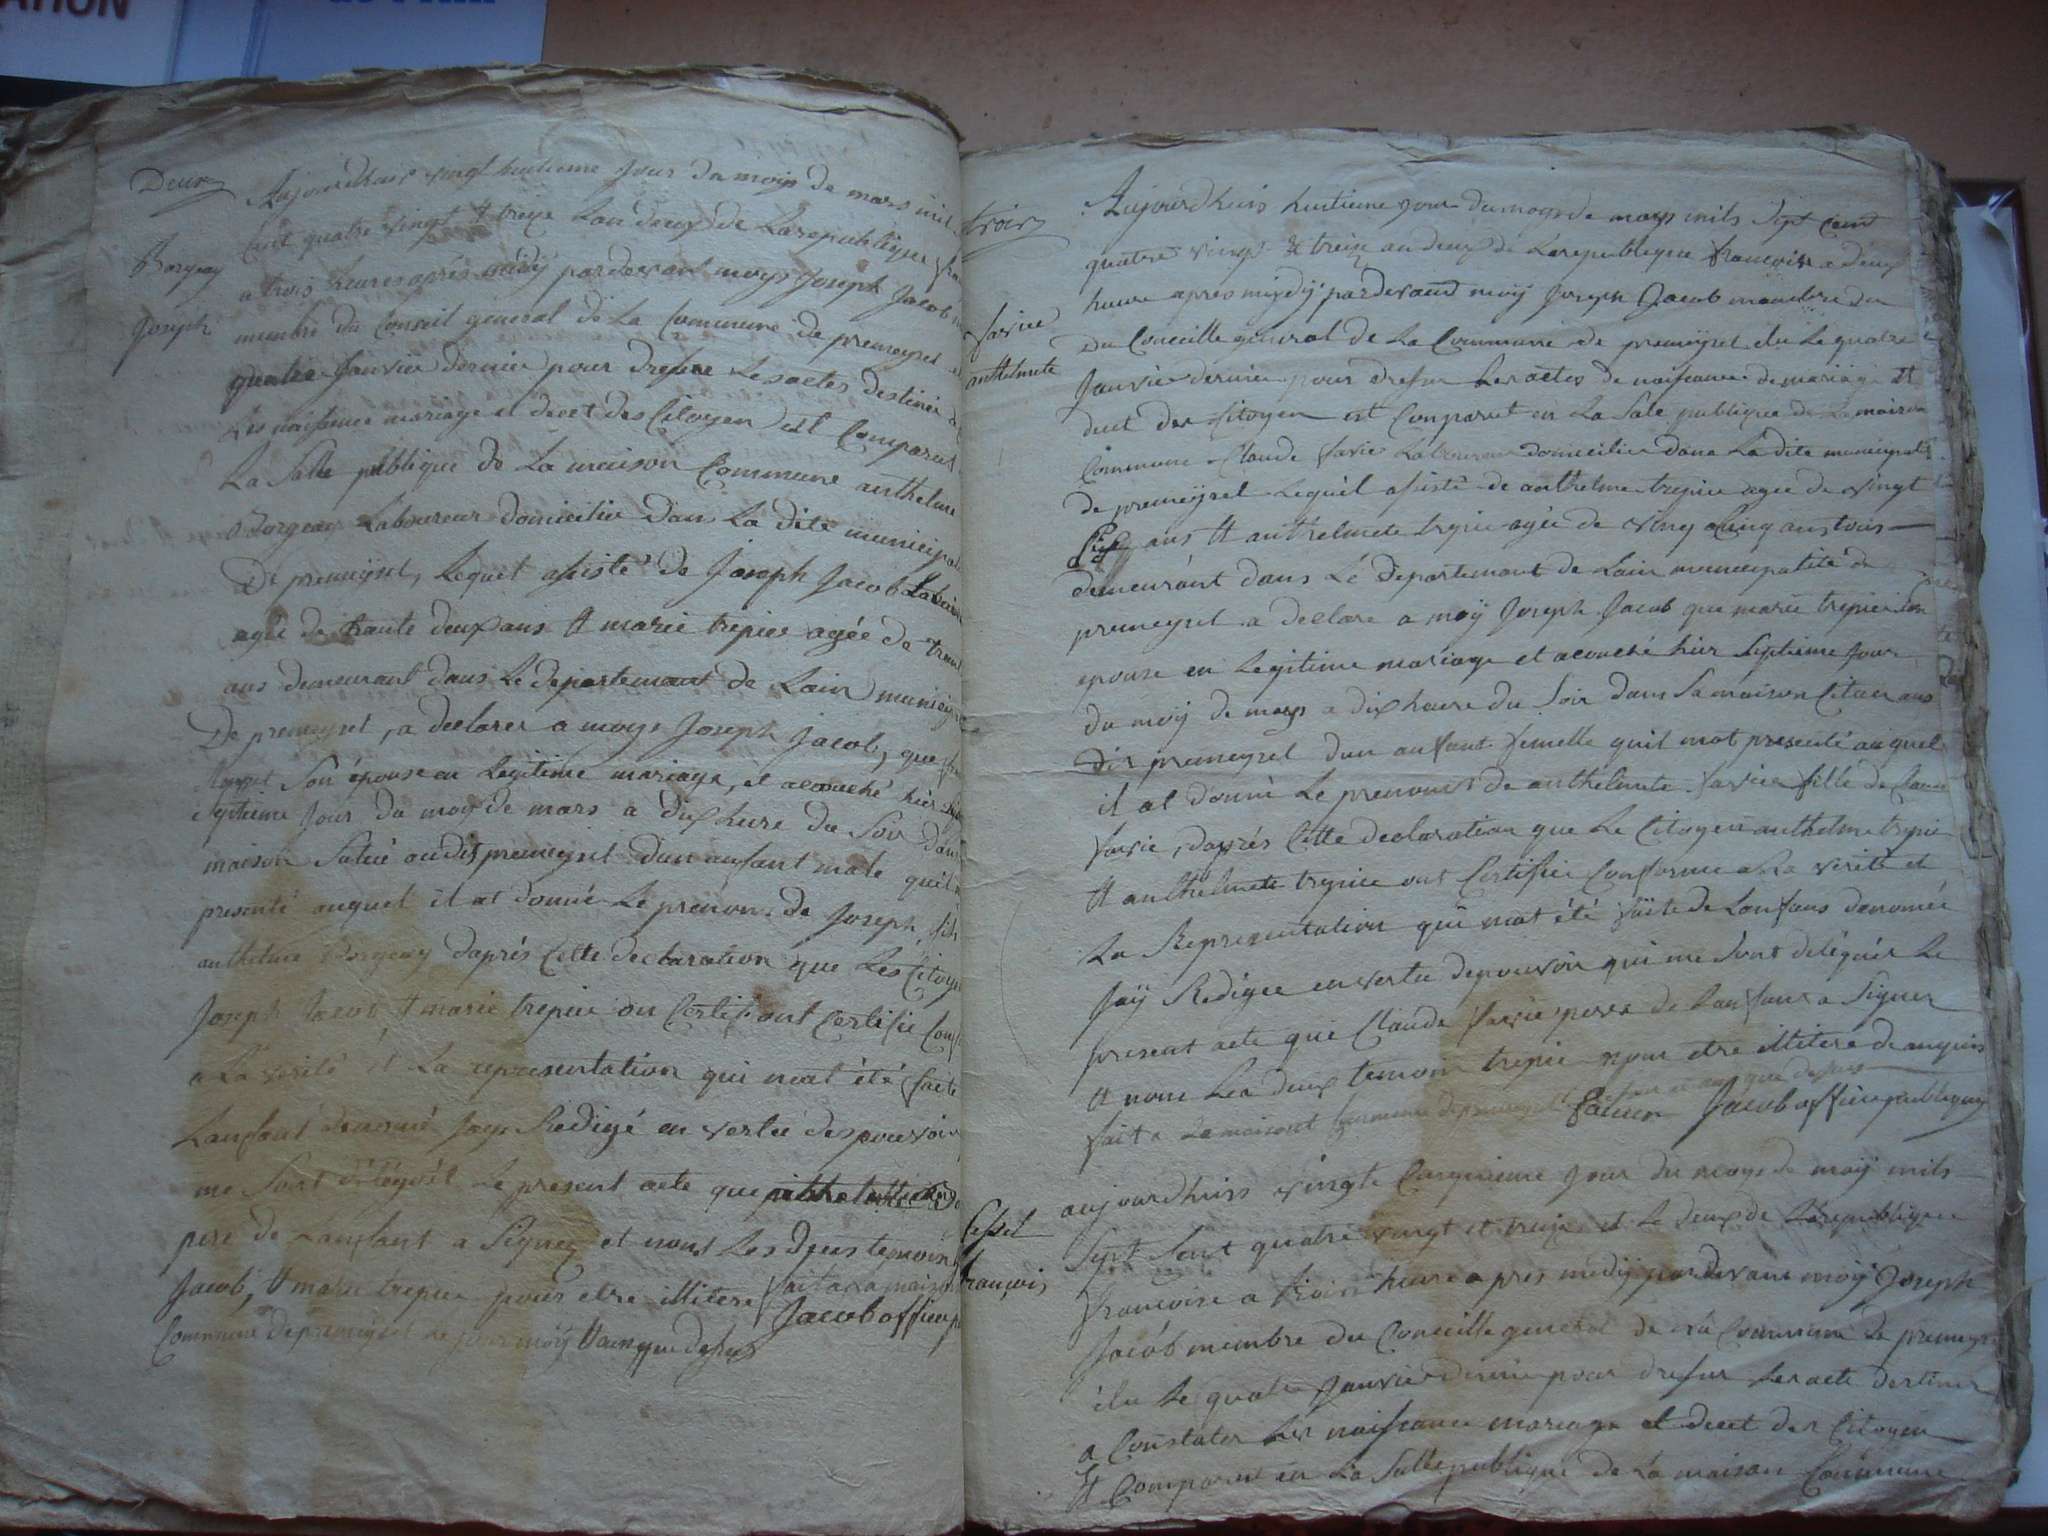 ATION
Deux
Borgeay
Joseph
Aujourdhuis vingt huitieme Jour du moys de mars mil
Cent quatre vingt et treize Lan deux de La republique
a trois heures après midÿ pardevant moys Joseph Jacob
membre du Conseil general de La Commune de premeyzel
quatre Janvier dernier pour dresser Les actes destinés
Les naissance mariage et decet des Citoyen est Comparut
La Salle publique de La maison Commune anthelme
Borgeay Laboureur domicilié Dans La dite municipal
De premeyzel, Lequel assisté de Joseph Jacob
agée de trante deux ans et marie trepier agée de
ans demeurant dans Le departemant de Lain municip
De premeyzel, a declarer a moys Joseph Jacob, que
Son épouse en Legitime mariage, et acouché hier
septieme Jour du moy de mars a dix heure du Soir dans
maison Situé audis premeyzel dun anfant male quil
presenté auquel il at donné Le prénom de Joseph, fils
anthelme Borgeay daprés Cette declaration que Les Citoyen
Joseph Jacob et marie trepier on Certifi ont Certifié
a La verité et La representation qui mat été faite
Lanfant denomé Jays Redigé en vertu des pouvoir
me Sont délégués Le present acte que
pere de Lanfant a Signez et nont Les deus temoin
Jacob, et marie trepier pour etre illitere fait a La maison
Commune de premeyzel Le Jour moÿ et an que dessus Jacob officier
trois
favier
anthelmete
Aujourdhuis huitieme Jour du moys de mars mils Sept Cent
quatre vingt et treize an deux de La republique francoise a deux
heure après mydÿ pardevand moÿ Joseph Jacob mambre du
du Conceille general de La Commune de premeÿzel élu Le quatre
Janvier dernier pour dresser Les actes de naissance de mariage et
decet des Citoyen est Comparut en La Sale publique de La maison
Commune Claude favie Laboureur domicilier dans La dite municipalité
de premeÿzel Lequel assisté de anthelme trepier agee de vingt
Six ans et anthelmete trepier agée de vingt Cinq ans tous
demeurant dans Lé departemant de Lain municipalité de
premeyzel a declare a moÿ Joseph Jacob que marie trepier Son
epouse en Legitime mariage et acouché hier Septieme Jour
du moÿ de mars a dix heure du Soir dans Sa maison Cituer au
dis premeyzel dun anfant femelle quil mat presenté auquel
il at donné Le prenoms de anthelmete favier fille de Claude
favie, daprés Cette declaration que Le Citoyen anthelme trepier
et anthelmete trepier ont Certifier Conforme a La verité et
La Representation qui mat été faite de Lanfans denomée
Jaÿ Redigee en vertu de pouvoir qui me Sont delégués Le
present acte que Claude favie pere de Lanfans a Signer
et nont Les deux temoin trepier pour etre illitere de anquis
fait a La maison Commune de premeyzel Le Jour et an que dessus
favier Jacob officier publique
Cessel
françois
aujourdhuis vingte Cinquieme Jour du moys de maÿ mils
Sept Sent quatre vingt et treize et Le deux de La republique
francoise a trois heure apres midÿ pardevant moÿ Joseph
Jacób membre du Conceille general de La Commune de premeyzel
élu Le quatre Janvier dernier pour dresser Les acte destiner
a Constater Les naissance mariage et decet des Citoyen
Et Comparut en La Salle publique de La maison Commune